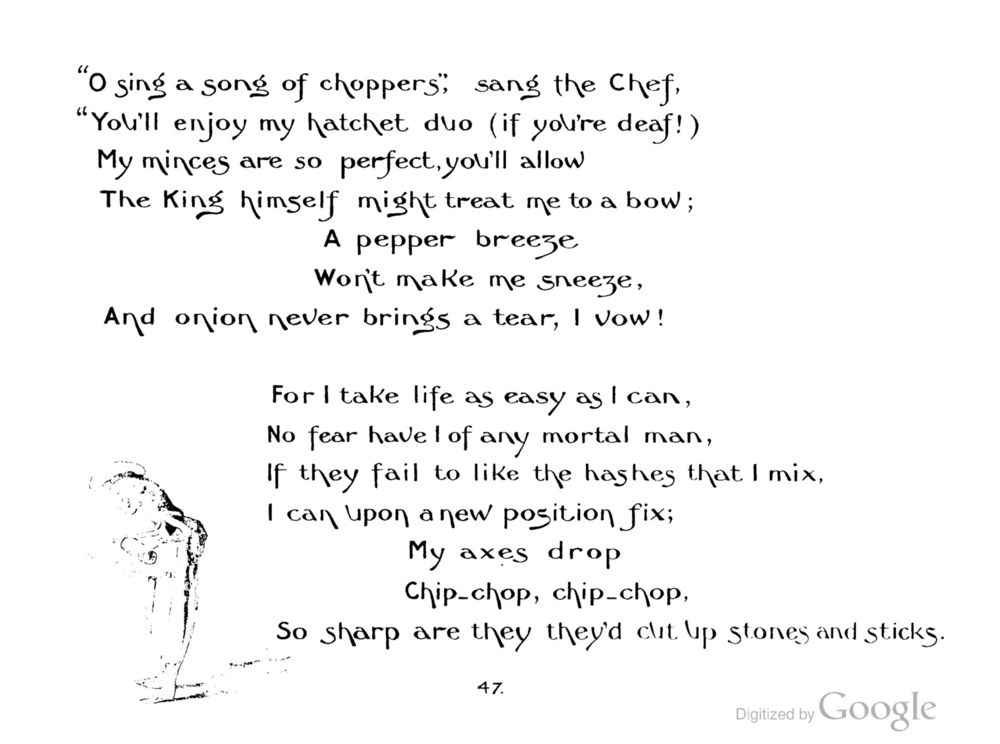 “O sing a song of choppers”, sang the Chef,
“You'll enjoy my hatchet duo (if you're deaf!)
My minces are so perfect, you'll allow
The King himself might treat me to a bow;
A pepper breeze
Won't make me sneeze,
And onion never brings a tear, I vow!
For I take life as easy as I can,
No fear have I of any mortal man,
If they fail to like the hashes that I mix,
I can upon a new position fix;
My axes drop
Chip-chop, chip-chop,
So sharp are they they'd cut up stones and sticks.
47.
Digitized by Google